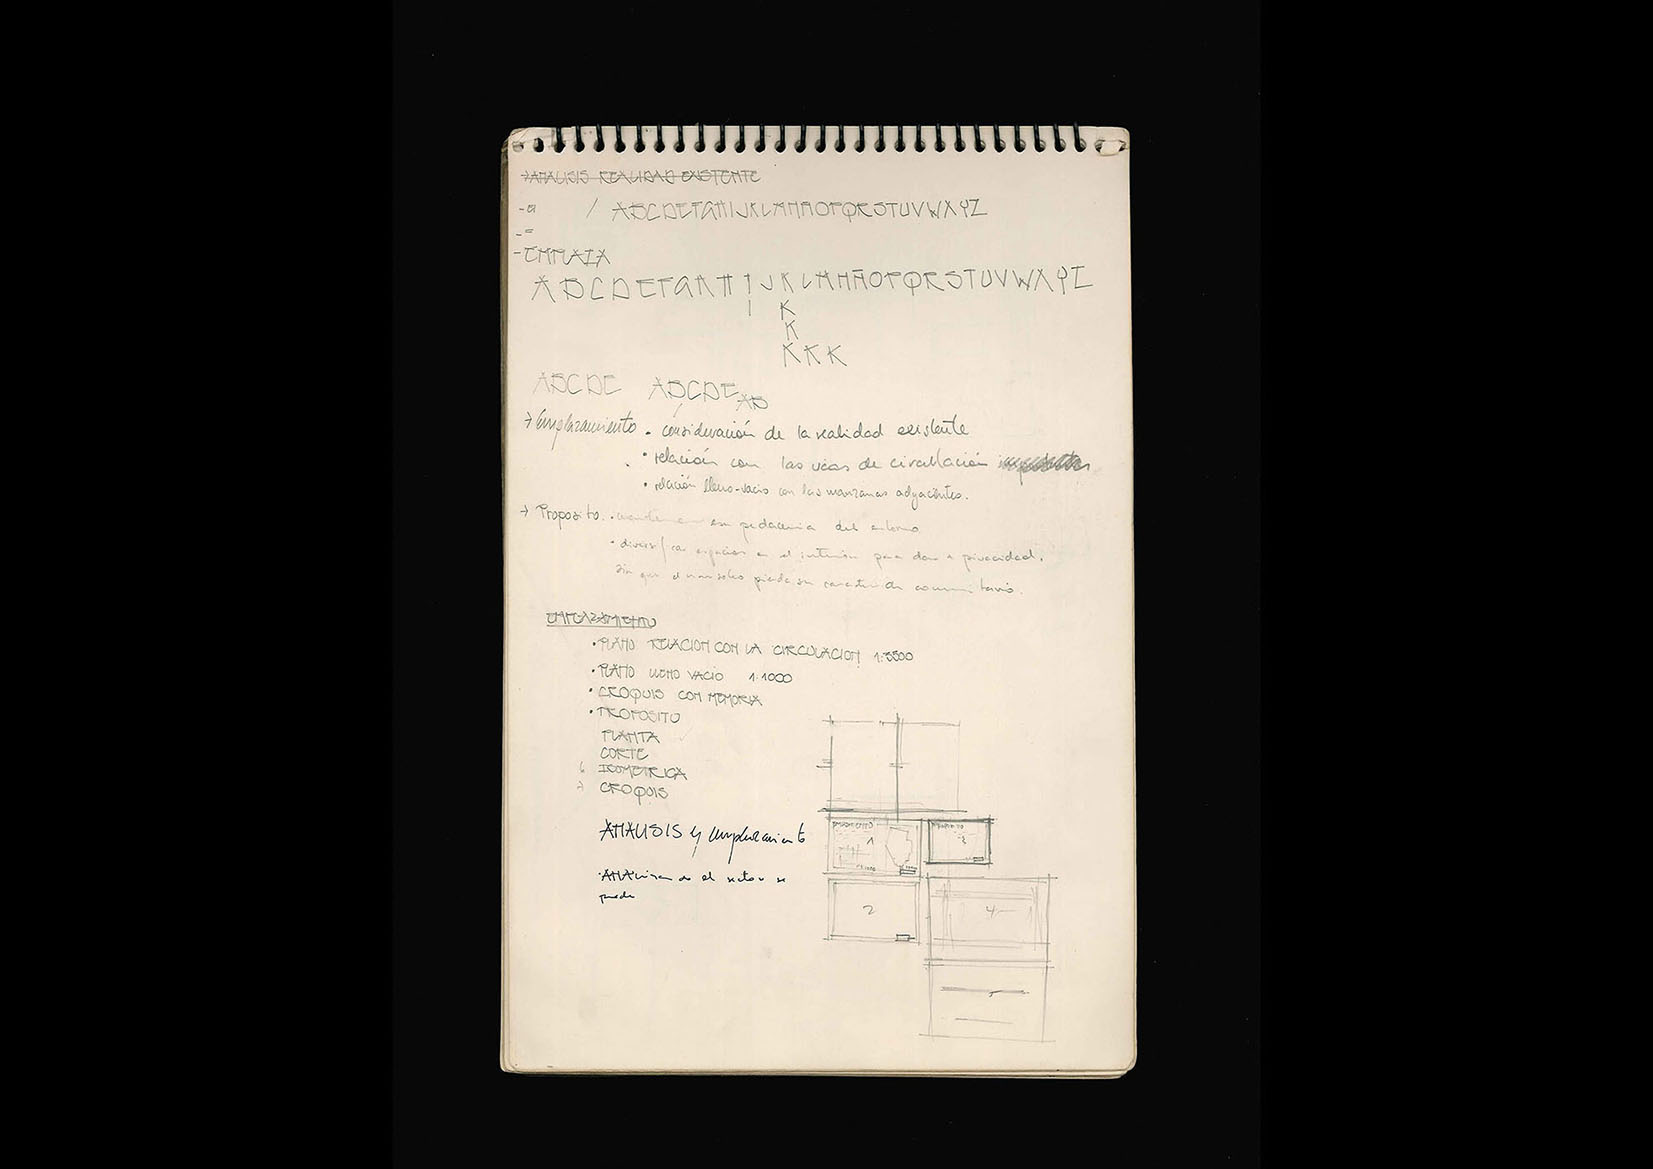 → ANALISIS REALIDAD EXISTENTE
- el / ABCDEFGHIJKLMNÑOPQRSTUVWXYZ
- =
- EMPLAZA
ABCDEFGHIJKLMNÑOPQRSTUVWXYZ
I K
K
K K K
ABCDE ABCDE AB
→ Emplazamiento • consideración de la realidad existente
• relación con las vias de circulación
• relación lleno-vacio con las manzanas adyacentes.
→ Proposito • del entorno
• diversificar espacios en el interior para dar + privacidad.
sin que el pierda su caracter de comunitario.
EMPLAZAMIENTO
• PLANO RELACION CON LA CIRCULACION 1:3500
• PLANO LLENO VACIO 1:1000
• CROQUIS CON MEMORIA
• PROPOSITO
PLANTA
CORTE
ISOMETRICA
CROQUIS
ANALISIS y emplazamiento
1
2
4